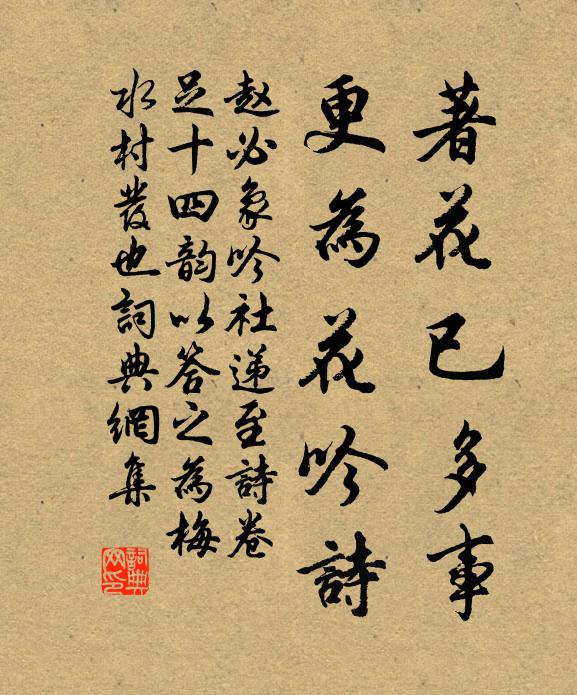 著花已多事
更為花吟詩
赵必象吟社递至詩卷
足十四韵以答之為梅
水村發也詞典網集
詞典网印